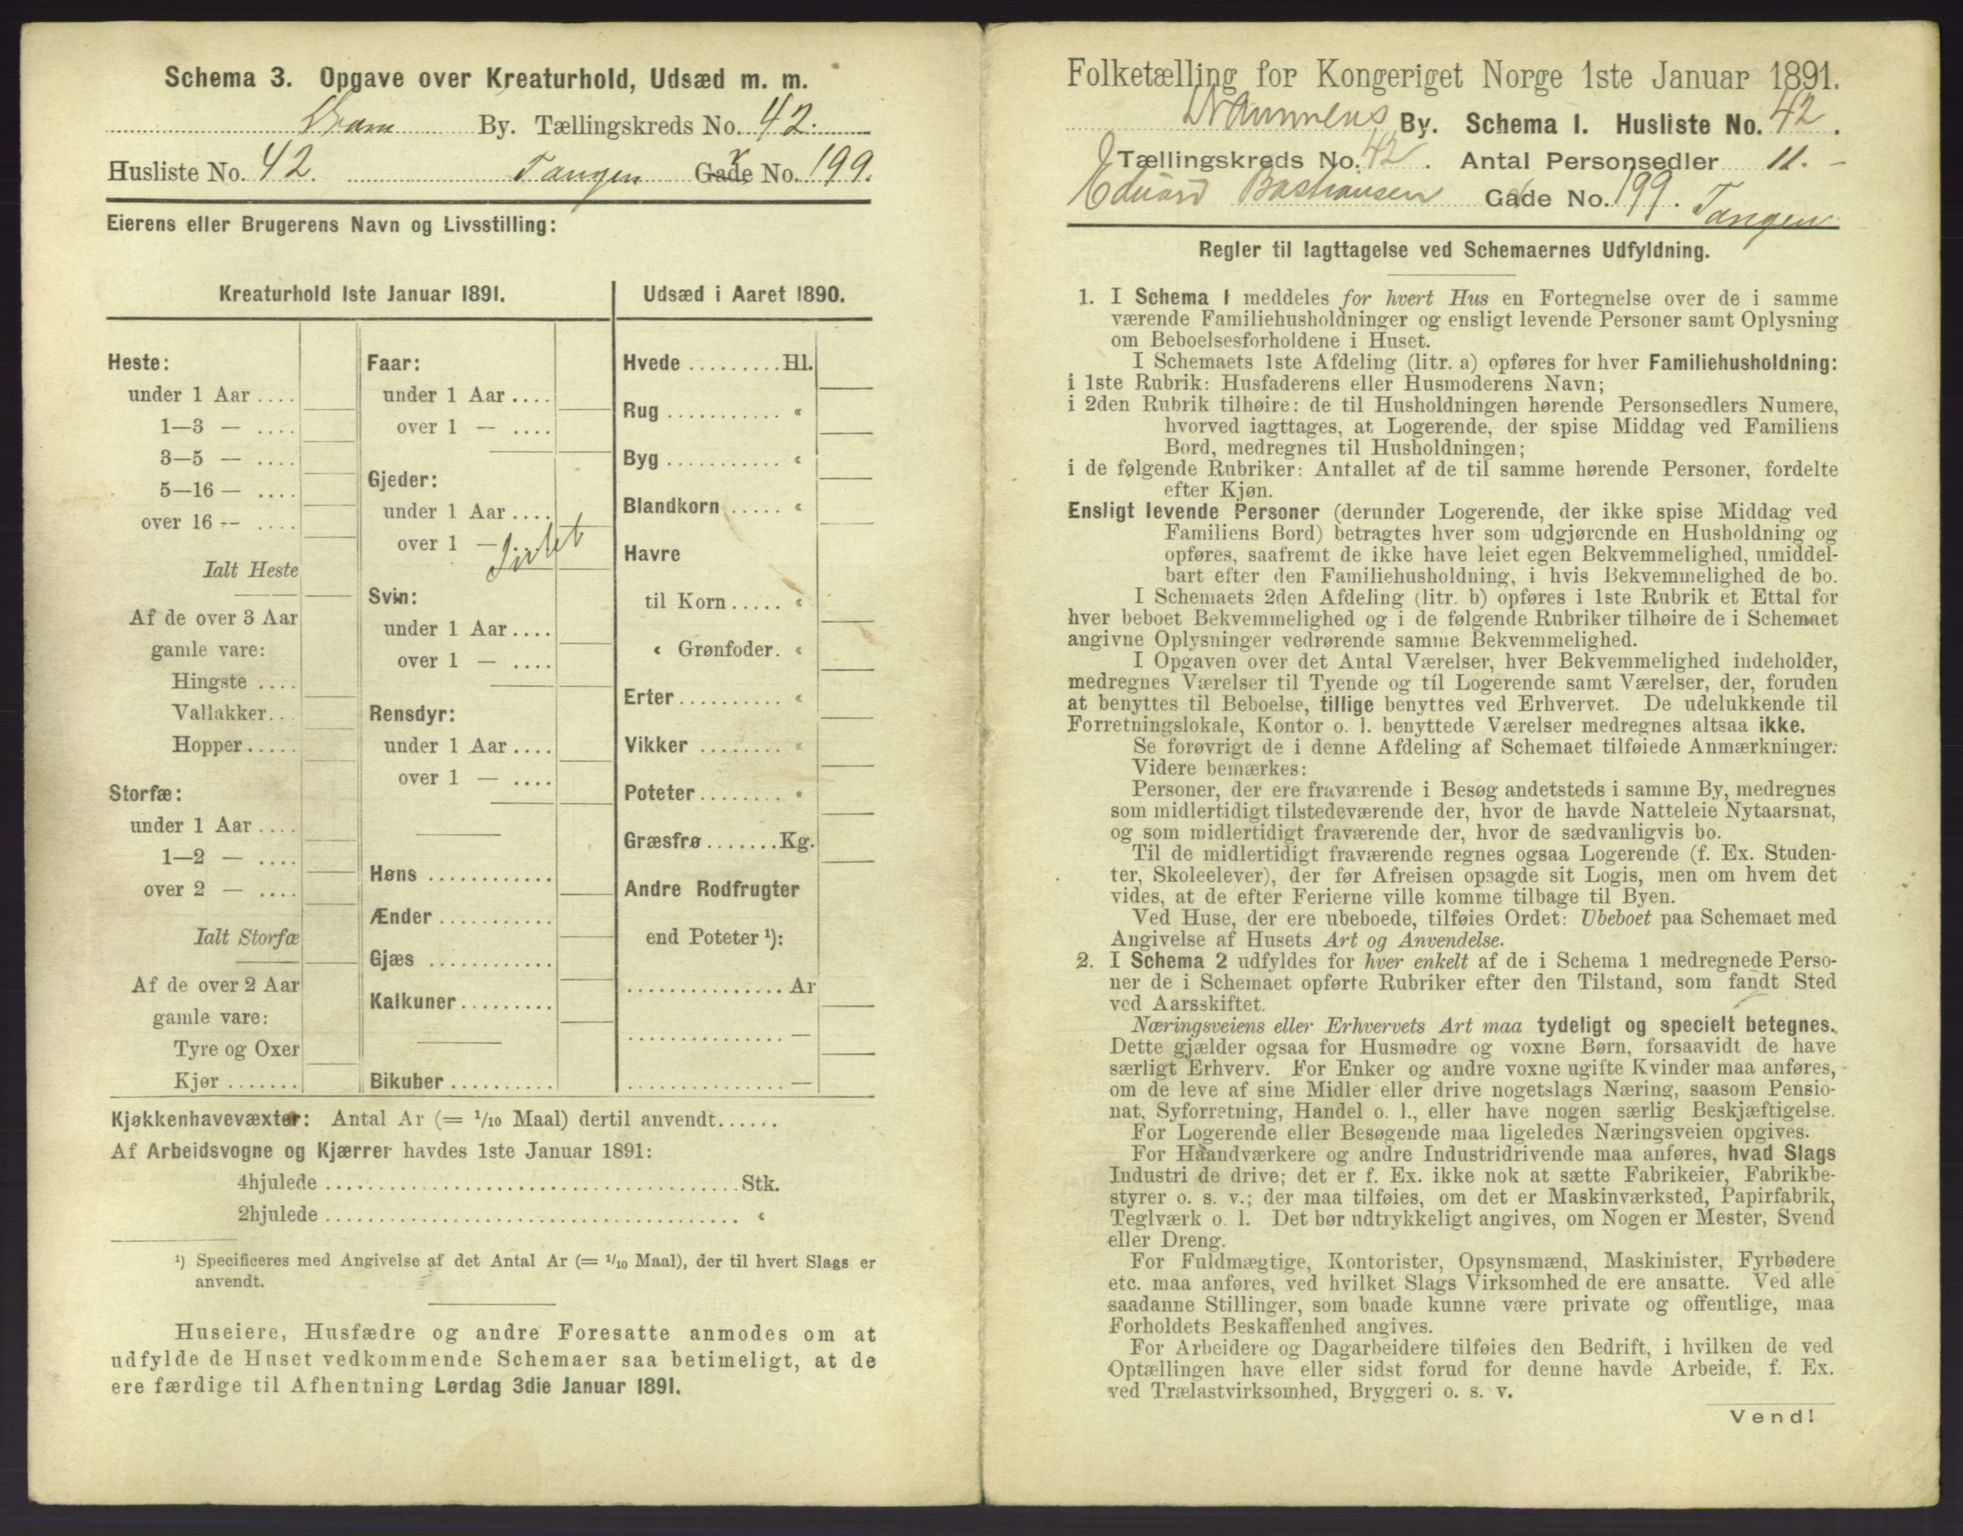 Schema 3. Opgave over Kreaturhold, Udsæd m. m.
Dram By. Tællingskreds No. 42.
Husliste No. 42. Tangen Gade No. 199.
Eierens eller Brugerens Navn og Livsstilling:
Kreaturhold 1ste Januar 1891.
Heste:
under 1 Aar ....
1—3 — ....
3—5 — ....
5—16 — ....
over 16 -- ....
Ialt Heste
Af de over 3 Aar
gamle vare:
Hingste ....
Vallakker...
Hopper.....
Storfæ:
under 1 Aar ....
1—2 — ....
over 2 — ....
Ialt Storfæ
Af de over 2 Aar
gamle vare:
Tyre og Oxer
Kjør .......
Faar:
under 1 Aar ....
over 1 — ....
Gjeder:
under 1 Aar ....
over 1 —
Svin:
under 1 Aar ....
over 1 — ....
Rensdyr:
under 1 Aar ....
over 1 — ....
Høns ............
Ænder ...........
Gjæs ............
Kalkuner.........
Bikuber ..........
Udsæd i Aaret 1890.
Hvede .........Hl.
Rug ........... «
Byg ........... «
Blandkorn ..... «
Havre
til Korn ..... «
« Grønfoder. «
Erter .......... «
Vikker ........ «
Poteter........ «
Græsfrø .......Kg.
Andre Rodfrugter
end Poteter ¹):
...............Ar
............... —
............... —
Kjøkkenhavevæxter: Antal Ar (= 1/10 Maal) dertil anvendt......
Af Arbeidsvogne og Kjærrer havdes 1ste Januar 1891:
4hjulede ........................................Stk.
2hjulede ........................................ «
¹) Specificeres med Angivelse af det Antal Ar (= 1/10 Maal), der til hvert Slags er
anvendt.
Huseiere, Husfædre og andre Foresatte anmodes om at
udfylde de Huset vedkommende Schemaer saa betimeligt, at de
ere færdige til Afhentning Lørdag 3die Januar 1891.
Folketælling for Kongeriget Norge 1ste Januar 1891.
Drammens By. Schema I. Husliste No. 42.
Tællingskreds No. 42. Antal Personsedler 11.-
Eduard Bastiansen Gade No. 199. Tangen
Regler til Iagttagelse ved Schemaernes Udfyldning.
1. I Schema 1 meddeles for hvert Hus en Fortegnelse over de i samme
værende Familiehusholdninger og ensligt levende Personer samt Oplysning
om Beboelsesforholdene i Huset.
I Schemaets 1ste Afdeling (litr. a) opføres for hver Familiehusholdning:
i 1ste Rubrik: Husfaderens eller Husmoderens Navn;
i 2den Rubrik tilhøire: de til Husholdningen hørende Personsedlers Numere,
hvorved iagttages, at Logerende, der spise Middag ved Familiens
Bord, medregnes til Husholdningen;
i de følgende Rubriker: Antallet af de til samme hørende Personer, fordelte
efter Kjøn.
Ensligt levende Personer (derunder Logerende, der ikke spise Middag ved
Familiens Bord) betragtes hver som udgjørende en Husholdning og
opføres, saafremt de ikke have leiet egen Bekvemmelighed, umiddel-
bart efter den Familiehusholdning, i hvis Bekvemmelighed de bo.
I Schemaets 2den Afdeling (litr. b) opføres i 1ste Rubrik et Ettal for
hver beboet Bekvemmelighed og i de følgende Rubriker tilhøire de i Schemaet
angivne Oplysninger vedrørende samme Bekvemmelighed.
I Opgaven over det Antal Værelser, hver Bekvemmelighed indeholder,
medregnes Værelser til Tyende og til Logerende samt Værelser, der, foruden
at benyttes til Beboelse, tillige benyttes ved Erhvervet. De udelukkende til
Forretningslokale, Kontor o. l. benyttede Værelser medregnes altsaa ikke.
Se forøvrigt de i denne Afdeling af Schemaet tilføiede Anmærkninger.
Videre bemærkes:
Personer, der ere fraværende i Besøg andetsteds i samme By, medregnes
som midlertidigt tilstedeværende der, hvor de havde Natteleie Nytaarsnat,
og som midlertidigt fraværende der, hvor de sædvanligvis bo.
Til de midlertidigt fraværende regnes ogsaa Logerende (f. Ex. Studen-
ter, Skoleelever), der før Afreisen opsagde sit Logis, men om hvem det
vides, at de efter Ferierne ville komme tilbage til Byen.
Ved Huse, der ere ubeboede, tilføies Ordet: Ubeboet paa Schemaet med
Angivelse af Husets Art og Anvendelse.
2. I Schema 2 udfyldes for hver enkelt af de i Schema 1 medregnede Perso-
ner de i Schemaet opførte Rubriker efter den Tilstand, som fandt Sted
ved Aarsskiftet.
Næringsveiens eller Erhvervets Art maa tydeligt og specielt betegnes.
Dette gjælder ogsaa for Husmødre og voxne Børn, forsaavidt de have
særligt Erhverv. For Enker og andre voxne ugifte Kvinder maa anføres,
om de leve af sine Midler eller drive nogetslags Næring, saasom Pensio-
nat, Syforretning, Handel o. l., eller have nogen særlig Beskjæftigelse.
For Logerende eller Besøgende maa ligeledes Næringsveien opgives.
For Haandværkere og andre Industridrivende maa anføres, hvad Slags
Industri de drive; det er f. Ex. ikke nok at sætte Fabrikeier, Fabrikbe-
styrer o. s. v.; der maa tilføies, om det er Maskinværksted, Papirfabrik,
Teglværk o. l. Det bør udtrykkeligt angives, om Nogen er Mester, Svend
eller Dreng.
For Fuldmægtige, Kontorister, Opsynsmænd, Maskinister, Fyrbødere
etc. maa anføres, ved hvilket Slags Virksomhed de ere ansatte. Ved alle
saadanne Stillinger, som baade kunne være private og offentlige, maa
Forholdets Beskaffenhed angives.
For Arbeidere og Dagarbeidere tilføies den Bedrift, i hvilken de ved
Optællingen have eller sidst forud for denne havde Arbeide, f. Ex.
ved Trælastvirksomhed, Bryggeri o. s. v.
Vend!